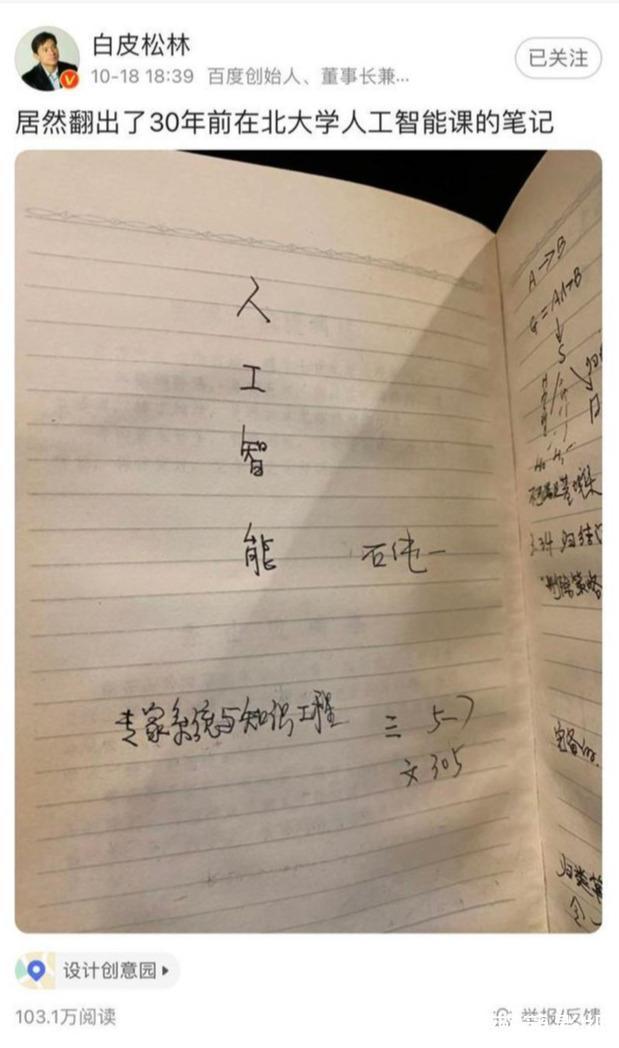 白皮松林
已关注
10-18 18:39 百度创始人、董事长兼...
居然翻出了30年前在北大学人工智能课的笔记
人
工
智
能 石纯一
专家系统与知识工程 三 5-7
文305
A→B
G=A∧~B
↓
S
3.34 归结
删除策略
完备
归类
设计创意园
103.1万阅读
举报/反馈